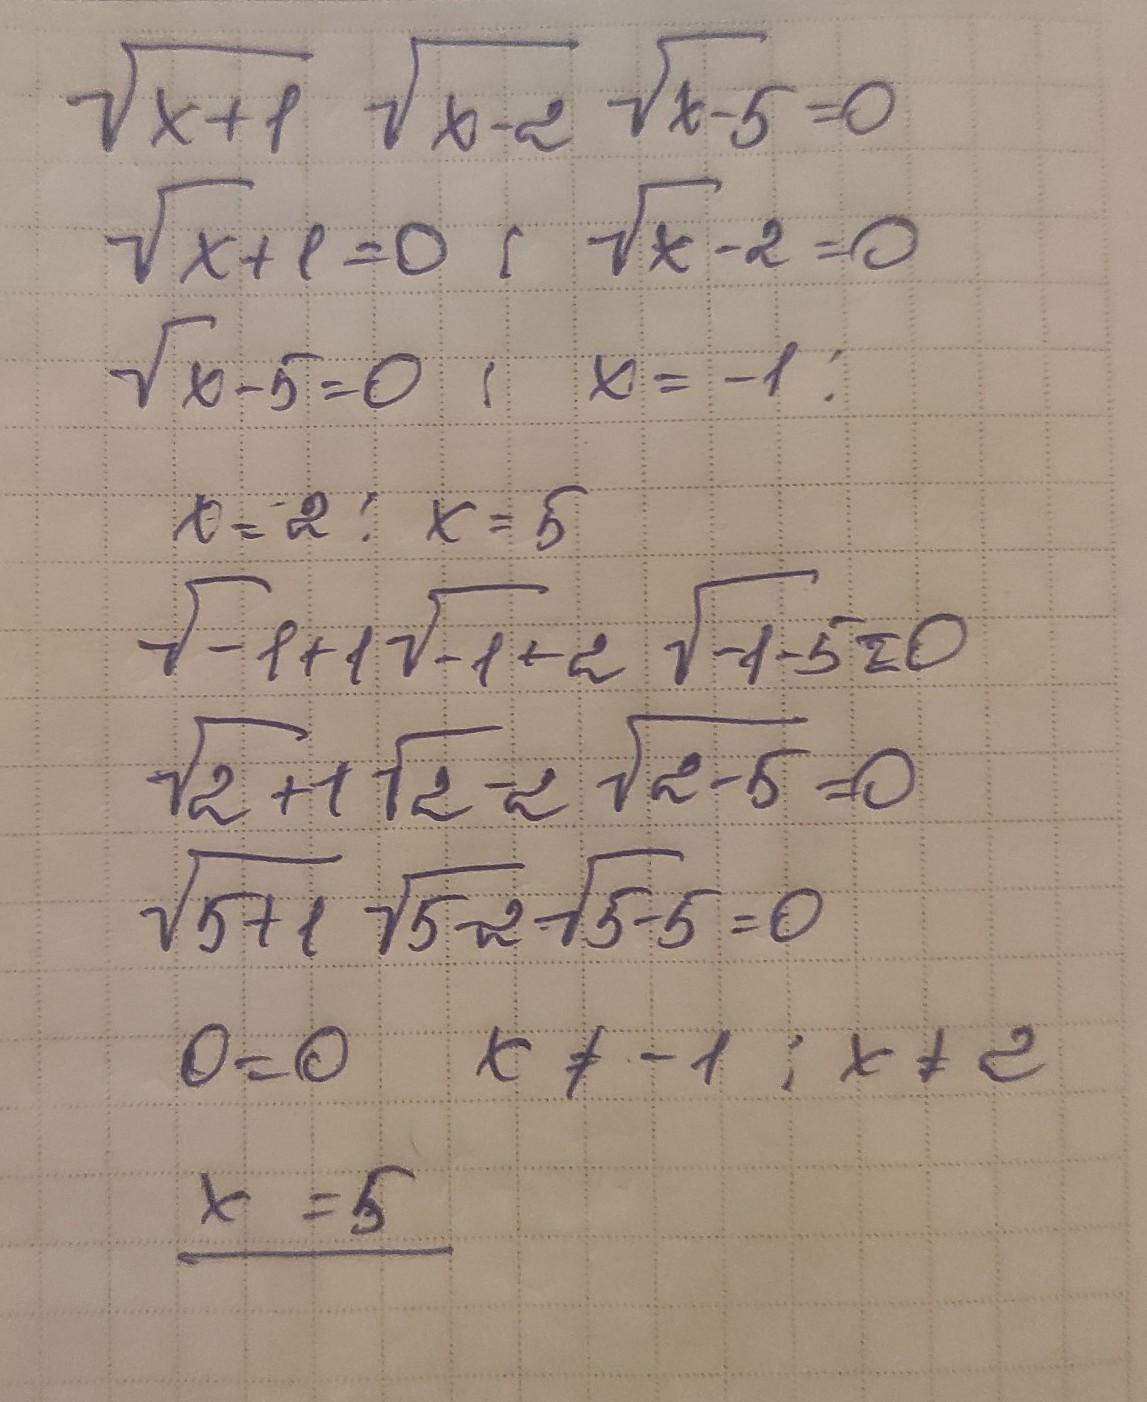 √x+1 √x-2 √x-5 =0
√x+1=0 ; √x-2=0
√x-5=0 ; x=-1;
x=2; x=5
√-1+1 √-1+2 √-1-5=0
√2+1 √2-2 √2-5=0
√5+1 √5-2 √5-5=0
0=0 x≠-1; x≠2
x =5